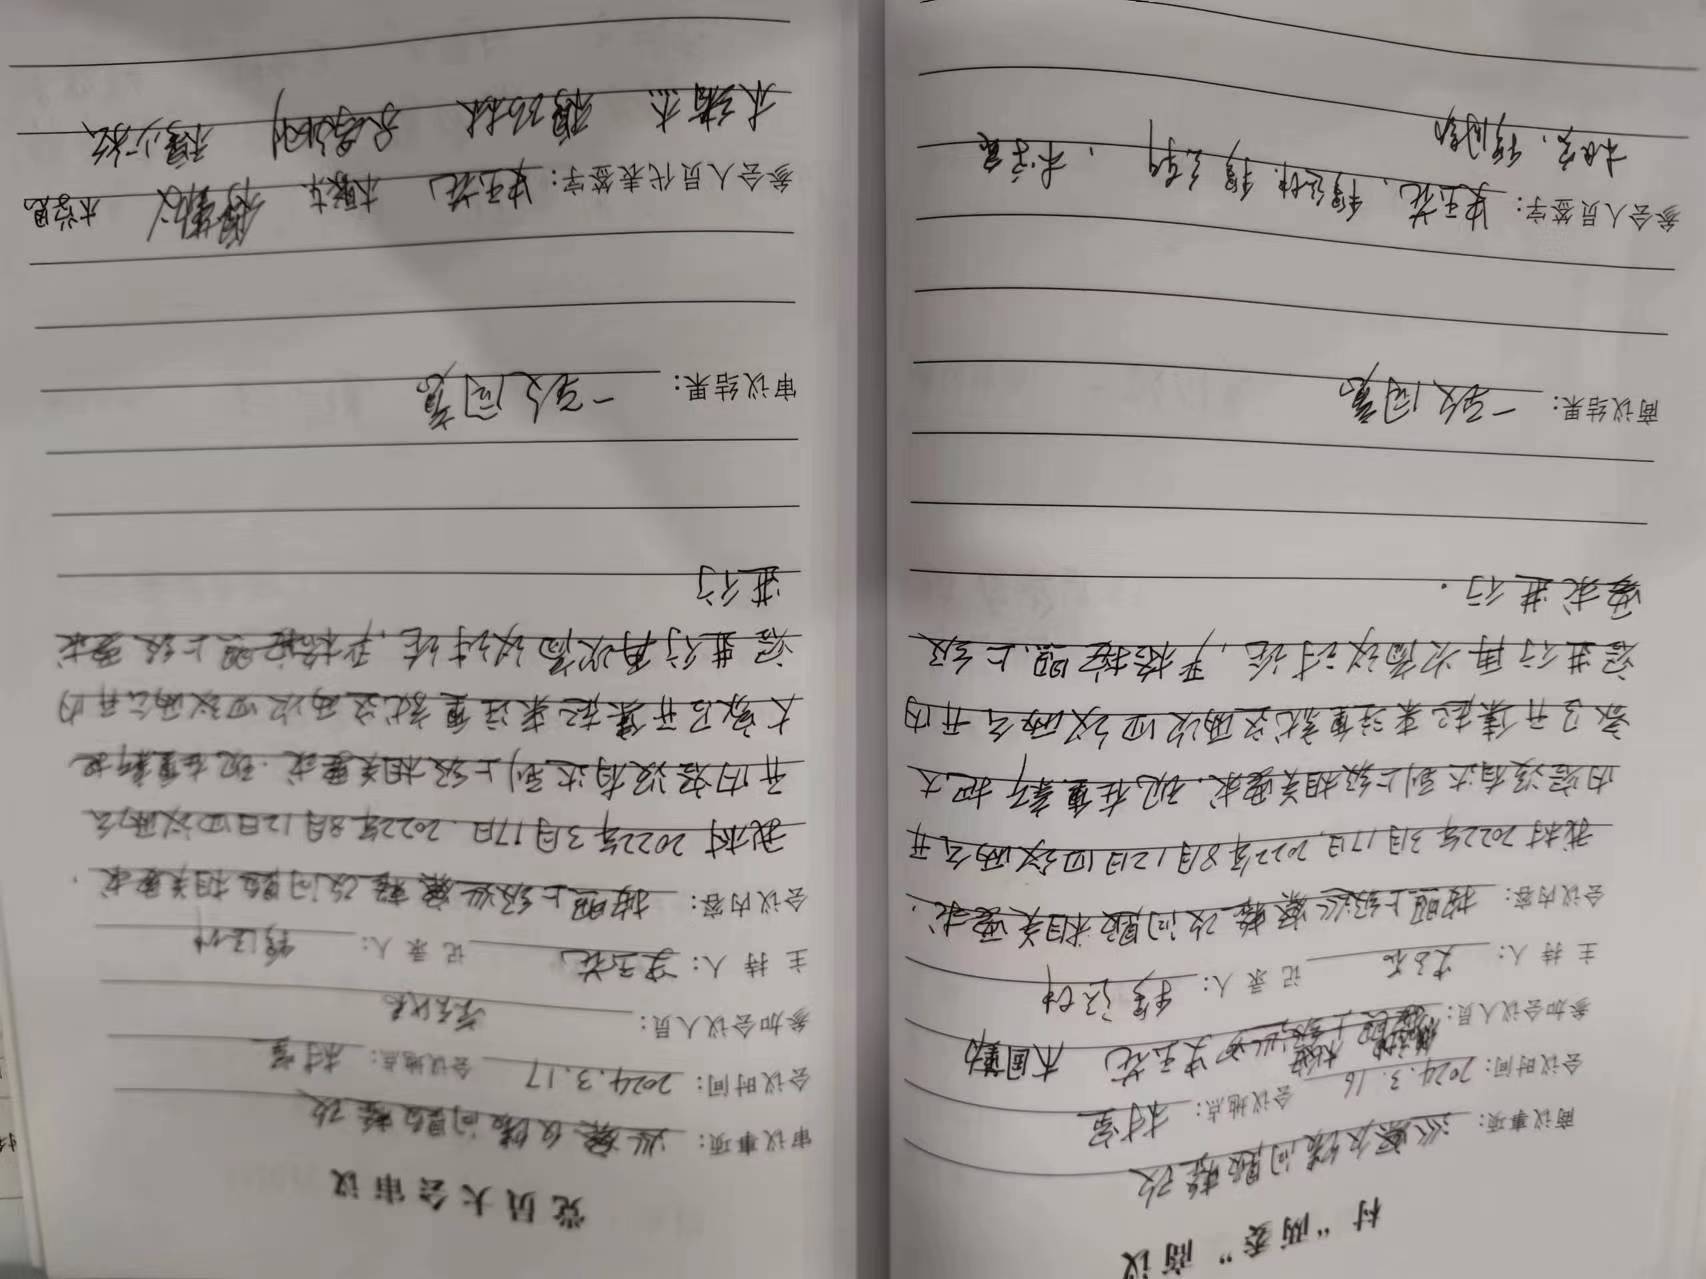 村“两委”商议
商议事项：巡察反馈问题整改
会议时间：2024.3.16 会议地点：村室
参加会议人员：史玉花
主 持 人： 记 录 人：
会议内容：按照上级巡察整改问题相关要求.
我村2022年3月17日,2022年8月12日四议两公开
内容没有达到上级相关要求.现在重新把大
家召开集起来注重就这两次四议两公开内
容进行再次商议讨论,严格按照上级
要求进行.
商议结果：一致同意
参会人员签字：史玉花、
党员大会审议
审议事项：巡察反馈问题整改
会议时间：2024.3.17 会议地点：村室
参加会议人员：
主 持 人：史玉花 记 录 人：
会议内容：按照上级巡察整改问题相关要求.
我村2022年3月17日.2022年8月12日四议两公
开内容没有达到上级相关要求.现在重新把
大家召开集起来注重就这两次四议两公开内
容进行再次商议讨论,严格按照上级要求
进行
审议结果：一致同意
参会人员代表签字：史玉花、